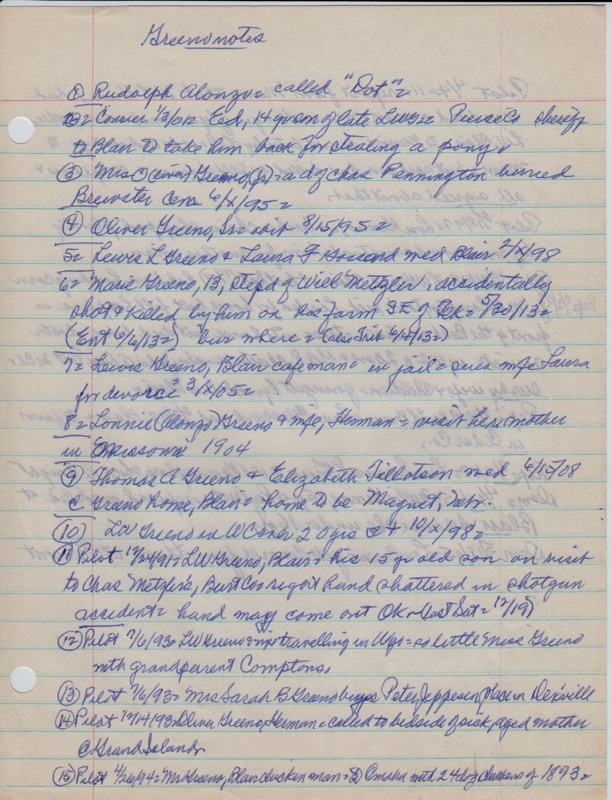 Greeno notes
① Rudolph Alonzo = called "Dot" =
2 = Courier 1/3/01 = Ed, 14 yr son of late LWG = Pierce Co sheriff
to Blair to take him back for stealing a pony.
③ Mrs O Greeno, = a d of Chas Pennington buried
Brewster Cem 6/x/95 =
④ Oliver Greeno, Sr = visit 8/15/95 =
5 = Lewis L Greeno & Laura F med Blair 2/x/98
6 = Marie Greeno, 13, stepd of Will Metzler, accidentally
shot & killed by him on his farm SE of Tek = 5/30/13 =
(Ent 6/6/13 =) bur where = (also Trib 6/14/13 =)
7 = Lewis Greeno, Blair cafe man = in jail = sues wife Laura
for divorce = 3/x/05 =
8 = Lonnie (Alonzo) Greeno & wife, Herman = visit her mother
in Missouri 1904
⑨ Thomas A Greeno & Elizabeth Tillotson med 6/15/08
@ Greeno home, Blair = home to be Magnet, Nebr.
⑩ LW Greeno in W Co over 20 yrs @ 10/x/98 =
⑪ Pilot 12/24/91 = LW Greeno, Blair = his 15 yr old son on visit
to Chas Metzler's, Burt Co = rigt hand shattered in shotgun
accident = hand may come out OK = last Sat = 12/19)
⑫ Pilot 7/6/93 = LW Greeno & wife travelling in Wyo = so little Miss Greeno
with grandparent Comptons.
⑬ Pilot 7/6/93 = Mrs Sarah B Greeno buys Peter Jeppesen place in De'ville
⑭ Pilot 12/14/93 = Oliver Greeno, Herman = called to bedside of sick, aged mother
@ Grand Island.
⑮ Pilot 4/26/94 = Mr Greeno, Blair chicken man = to Omaha with 24 doz chickens of 1893 =